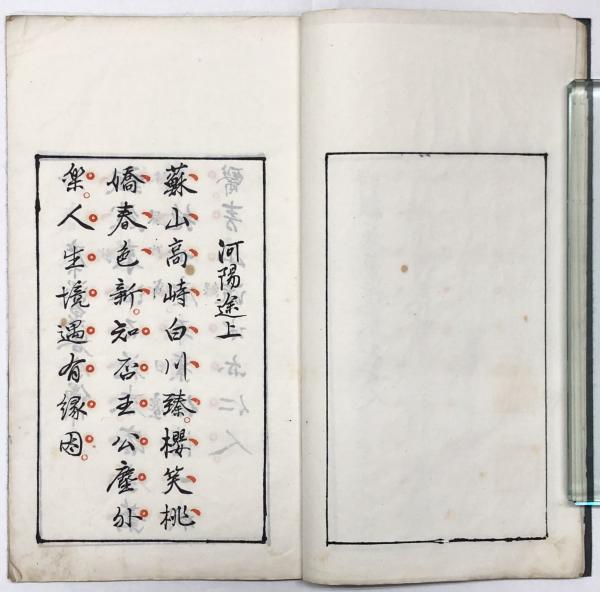 河陽途上
蘇山高峙白川臻櫻笑桃
嬌春色新知否王公塵外
樂人生境遇有緣因